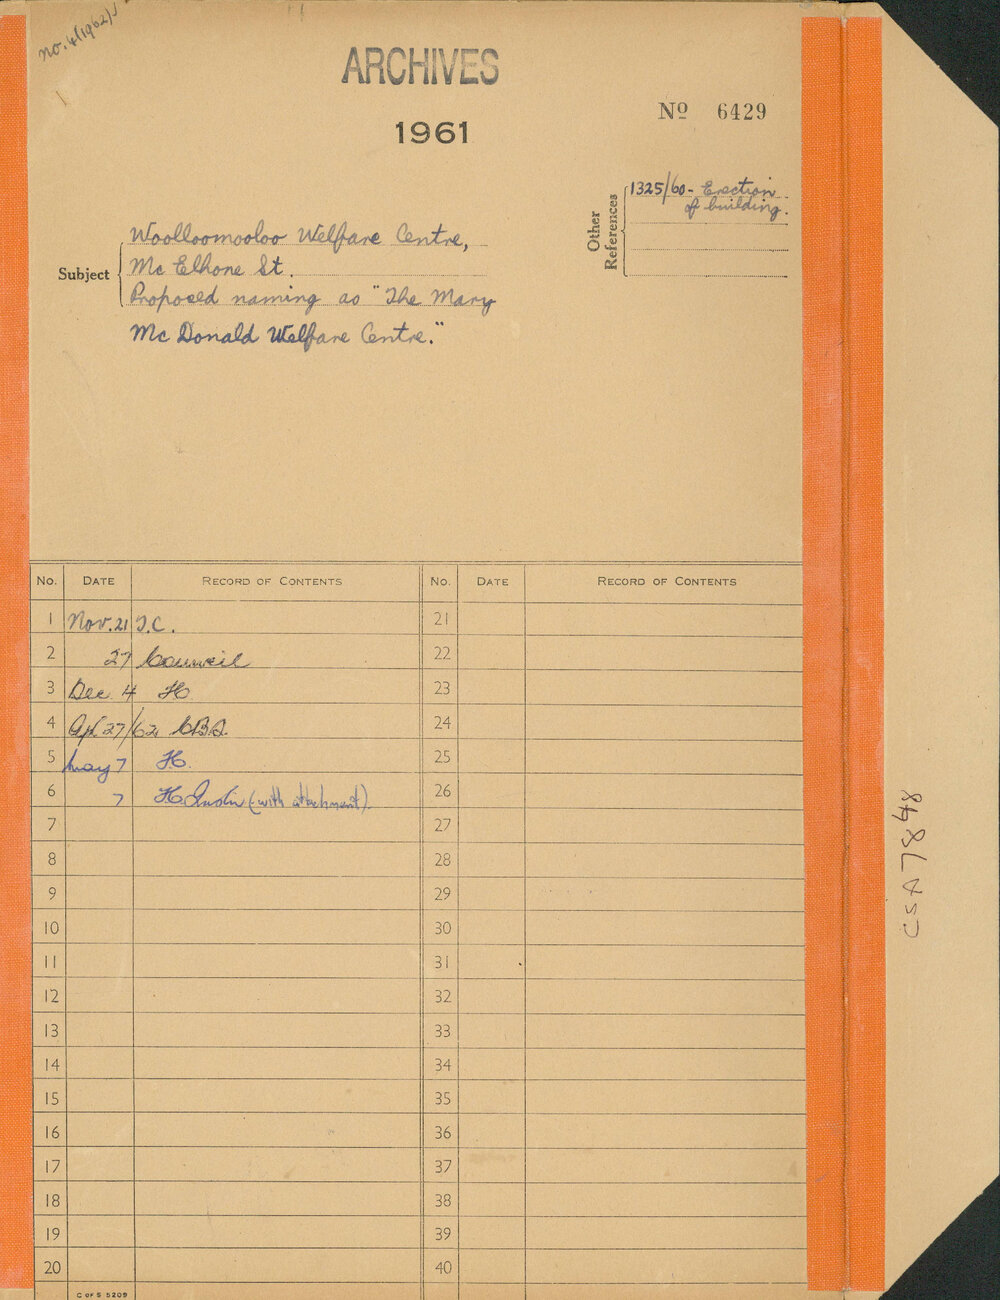 No. 4(1962)
ARCHIVES
1961
No 6429
Other References
1325/60 - Erection
of building.
Subject
Woolloomooloo Welfare Centre,
Mc Elhone St.
Proposed naming as "The Mary
Mc Donald Welfare Centre."
No. DATE RECORD OF CONTENTS No. DATE RECORD OF CONTENTS
1 Nov. 21 T.C. 21
2 27 Council 22
3 Dec 4 H 23
4 Apl 27/62 24
5 May 7 H. 25
6 7 H. (with attachment). 26
7 27
8 28
9 29
10 30
11 31
12 32
13 33
14 34
15 35
16 36
17 37
18 38
19 39
20 40
C OF S 5209
CSA 7848